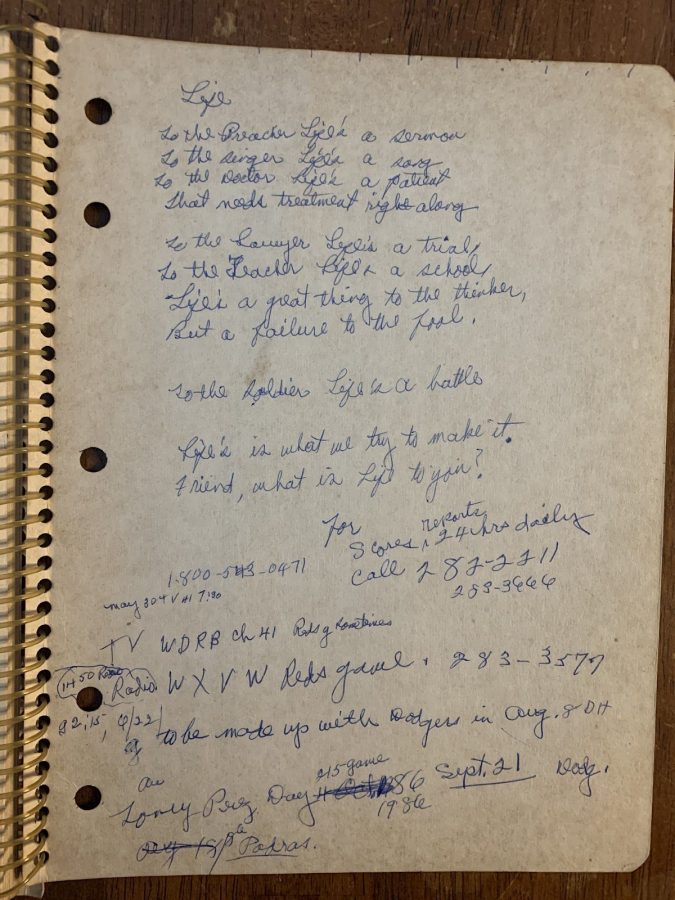 Life
To the Preacher Life's a sermon
To the singer Life's a song
To the Doctor Life's a patient
That needs treatment right along
To the Lawyer Life's a trial,
To the Teacher Life's a school,
Life's a great thing to the thinker,
But a failure to the fool.
To the soldier Life's a battle
Life's is what we try to make it.
Friend, what is Life to you?
For
Scores, reports 24 hrs daily
1-800-543-0471
Call 282-2211
253-3666
may 30 TV 41 7:30
TV WDRB ch 41 Reds g sometimes
1450 Radio
Radio WXVW Reds game. 283-3577
g 2:15, 6/22/
g to be made up with Dodgers in Aug. 8 DH
215 game
Perez Day 86 Sept. 21
1986
Padras.